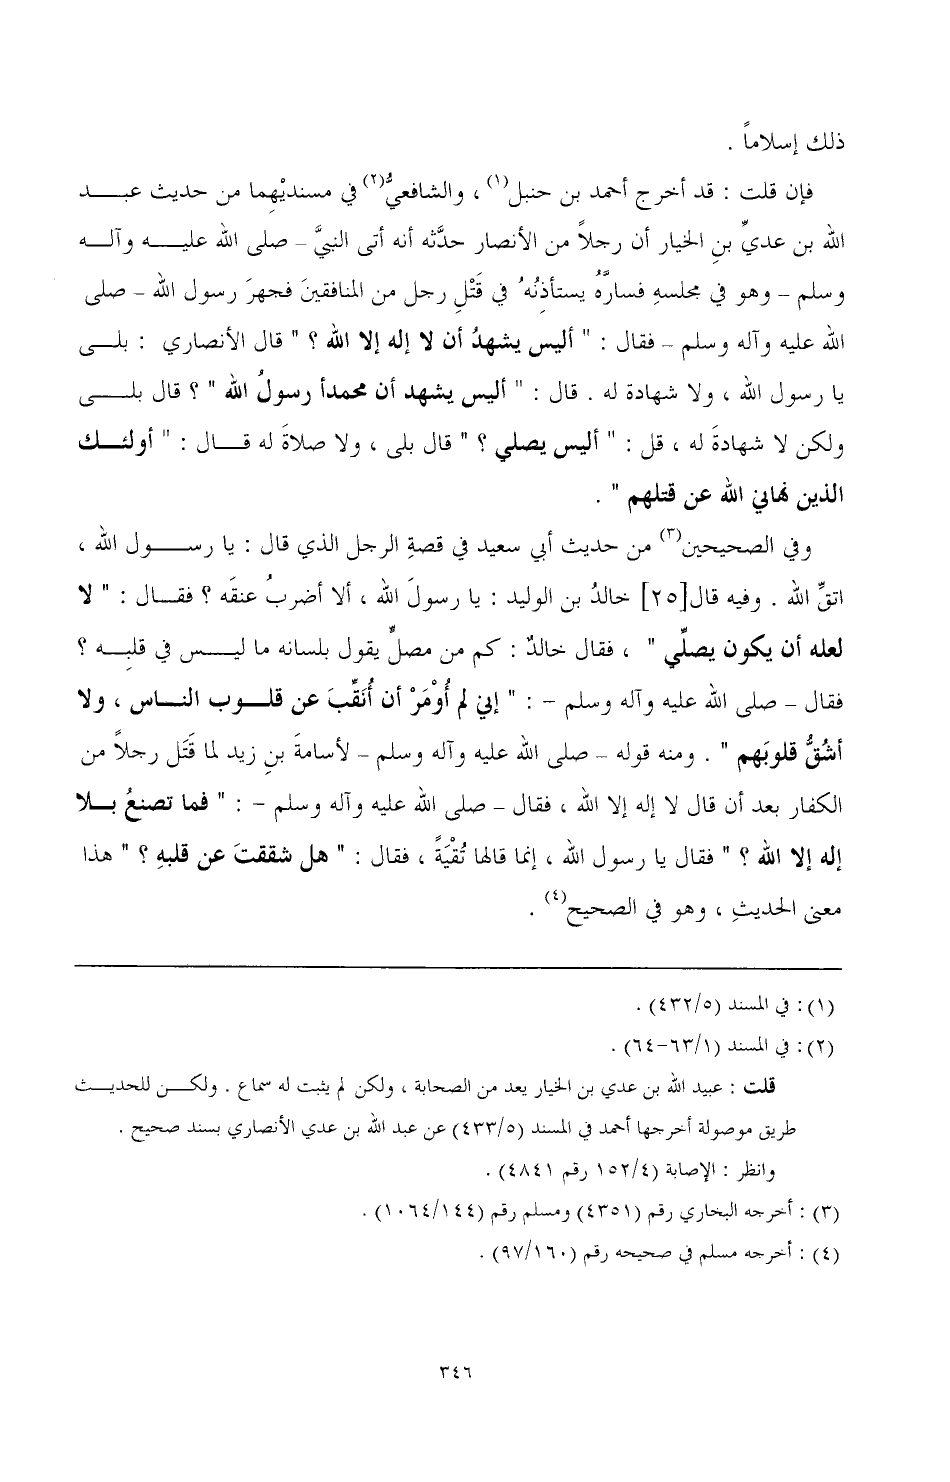 ذلك إسلاماً .
فإن قلت : قد أخرج أحمد بن حنبل(١) ، والشافعيُّ(٢) في مسنديْهما من حديث عبد
الله بن عديِّ بنِ الخيار أن رجلاً من الأنصار حدَّثه أنه أتى النبيَّ – صلى الله عليه وآله
وسلم – وهو في مجلسهِ فسارَّهُ يستأذِنُهُ في قَتْلِ رجل من المنافقينَ فجهرَ رسول الله – صلى
الله عليه وآله وسلم – فقال : " أليس يشهدُ أن لا إله إلا الله ؟ " قال الأنصاري : بلى
يا رسول الله ، ولا شهادة له . قال : " أليس يشهد أن محمدأ رسولُ الله " ؟ قال بلى
ولكن لا شهادةَ له ، قل : " أليس يصلي ؟ " قال بلى ، ولا صلاةَ له قال : " أولئك
الذين نهاني الله عن قتلهم " .
وفي الصحيحين(٣) من حديث أبي سعيد في قصةِ الرجل الذي قال : يا رسول الله ،
اتقِّ الله . وفيه قال[٢٥] خالدُ بن الوليد : يا رسولَ الله ، ألا أضربُ عنقَه ؟ فقال : " لا
لعله أن يكون يصلِّي " ، فقال خالدٌ : كم من مصلٍّ يقول بلسانه ما ليس في قلبِه ؟
فقال – صلى الله عليه وآله وسلم – : " إني لم أُوْمَرْ أن أُنَقِّبَ عن قلوب الناس ، ولا
أشُقُّ قلوبَهم " . ومنه قوله – صلى الله عليه وآله وسلم – لأسامةَ بنِ زيد لما قَتَل رجلاً من
الكفار بعد أن قال لا إله إلا الله ، فقال – صلى الله عليه وآله وسلم – : " فما تصنعُ بلا
إله إلا الله ؟ " فقال يا رسول الله ، إنما قالها تُقْيَةً ، فقال : " هل شققتَ عن قلبهِ ؟ " هذا
معنى الحديثِ ، وهو في الصحيح(٤) .
(١) : في المسند (٤٣٢/٥) .
(٢) : في المسند (٦٣/١–٦٤) .
قلت : عبيد الله بن عدي بن الخيار يعد من الصحابة ، ولكن لم يثبت له سماع . ولكن للحديث
طريق موصولة أخرجها أحمد في المسند (٤٣٣/٥) عن عبد الله بن عدي الأنصاري بسند صحيح .
وانظر : الإصابة (١٥٢/٤ رقم ٤٨٤١) .
(٣) : أخرجه البخاري رقم (٤٣٥١) ومسلم رقم (١٠٦٤/١٤٤) .
(٤) : أخرجه مسلم في صحيحه رقم (٩٧/١٦٠) .
٣٤٦